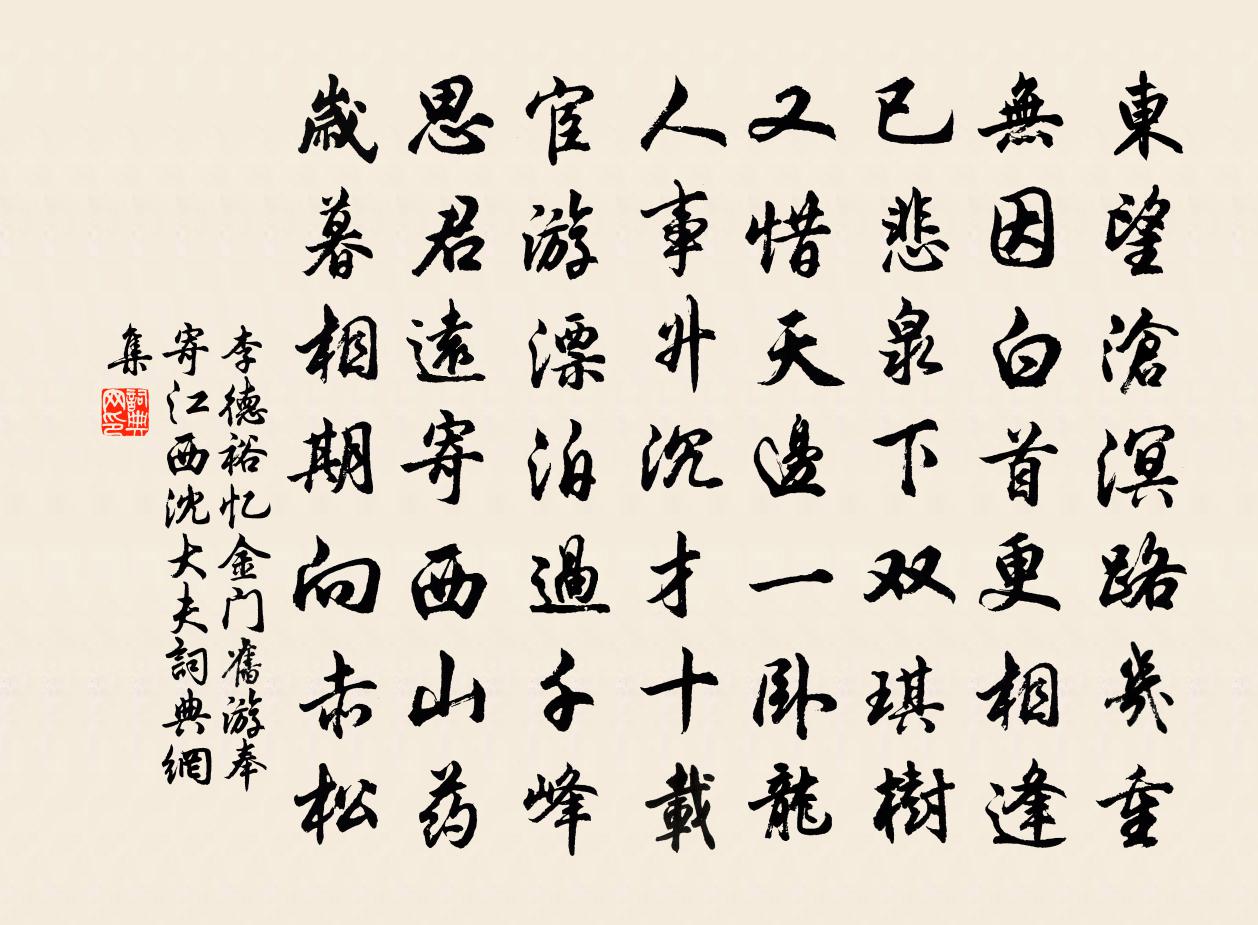 東望滄溟路幾重
無因白首更相逢
已悲泉下双琪樹
又惜天邊一卧龍
人事升沉才十載
宦游漂泊過千峰
思君遠寄西山药
歲暮相期向赤松
李德裕忆金门舊游奉
寄江西沈大夫詞典網
集
詞典
网印